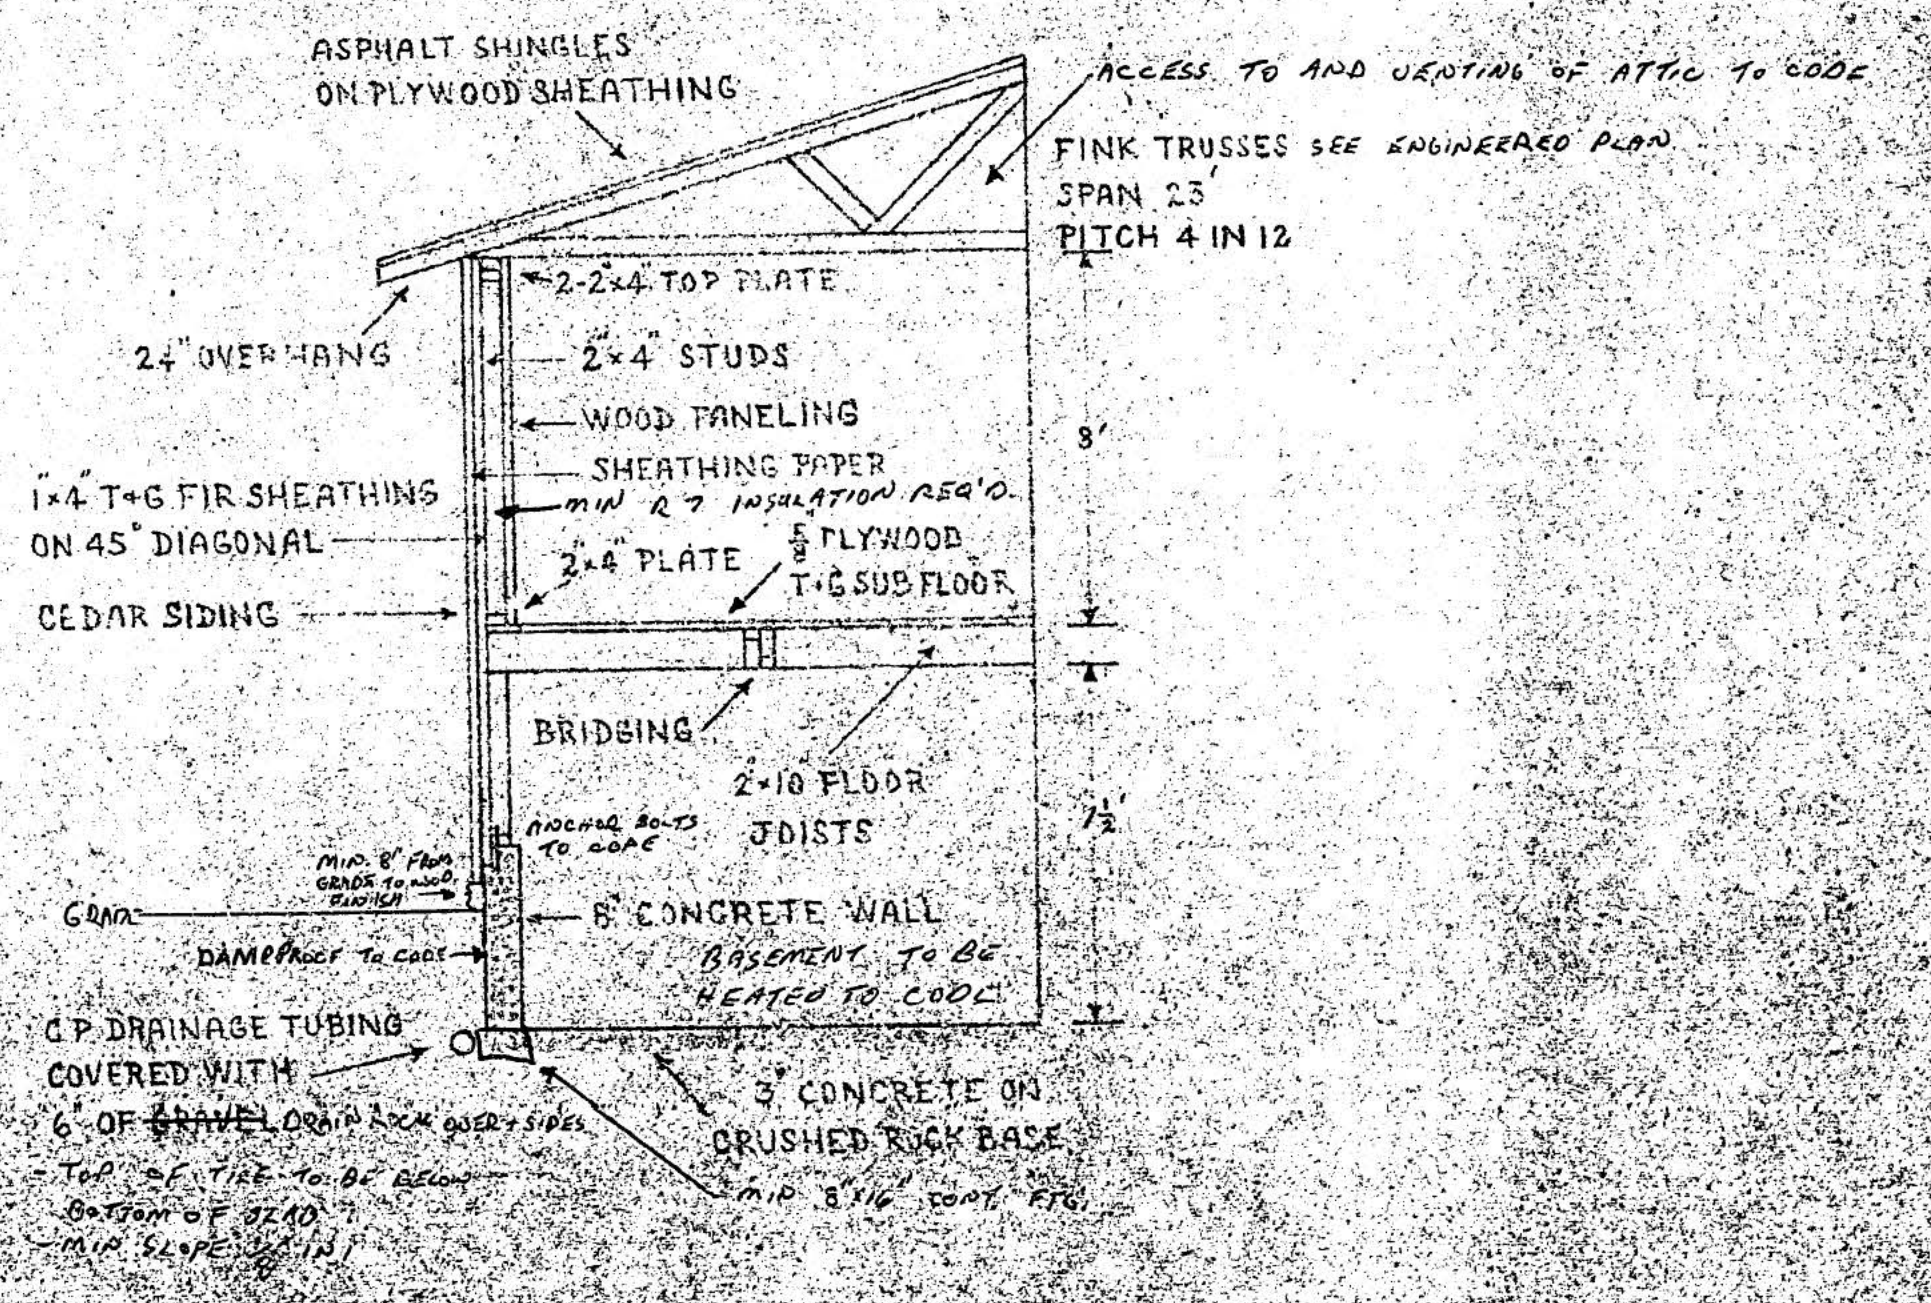 ASPHALT SHINGLES
ON PLYWOOD SHEATHING
ACCESS TO AND VENTING OF ATTIC TO CODE
FINK TRUSSES SEE ENGINEERED PLAN
SPAN 23'
PITCH 4 IN 12
2-2"x4" TOP PLATE
24" OVERHANG
2"x4" STUDS
WOOD PANELING
8'
SHEATHING PAPER
MIN R 7 INSULATION REQ'D.
1"x4" T+G FIR SHEATHING
ON 45° DIAGONAL
2"x4" PLATE
5/8" PLYWOOD
T+G SUB FLOOR
CEDAR SIDING
BRIDGING
2"x10" FLOOR
JOISTS
7 1/2'
ANCHOR BOLTS
TO CODE
MIN. 8" FROM
GRADE TO WOOD
FINISH
GRADE
8" CONCRETE WALL
DAMPPROOF TO CODE
BASEMENT TO BE
HEATED TO CODE
C P DRAINAGE TUBING
COVERED WITH
6" OF GRAVEL DRAIN ROCK OVER + SIDES
- TOP OF TILE TO BE BELOW
BOTTOM OF SLAB
- MIN SLOPE IN 1
3" CONCRETE ON
CRUSHED ROCK BASE
MIN 8"x16" CONT. FTG.